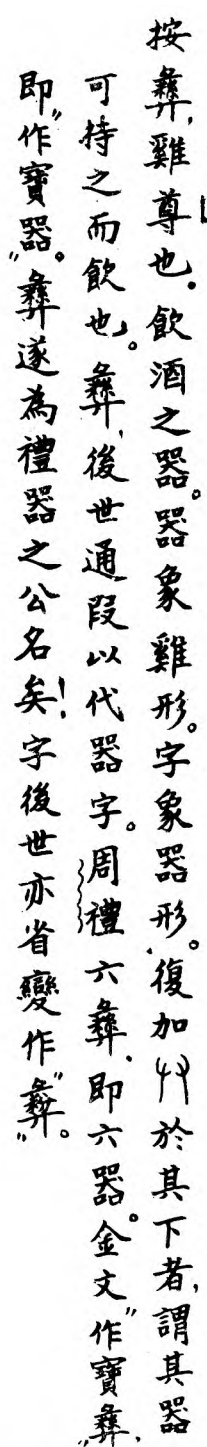 按彝,雞尊也。飲酒之器。器象雞形。字象器形。復加𠬞於其下者,謂其器
可持之而飲也。彝,後世通叚以代器字。周禮六彝、即六器。金文"作寶彝"、
即"作寶器"。彝遂為禮器之公名矣!字後世亦省變作"彝"。